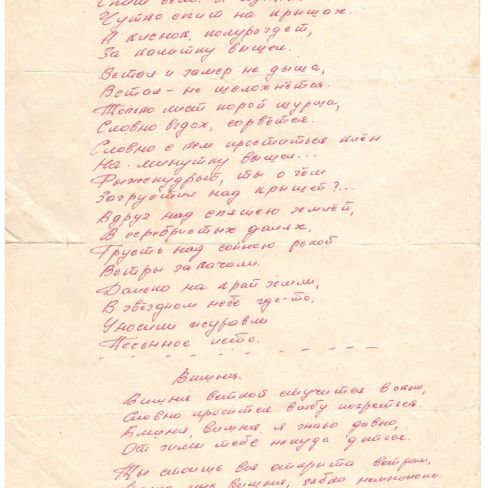 Чутко спит на крышах.
А кленок, полураздет,
За калитку вышел.
Встал и замер не дыша,
Встал - не шелохнётся.
Только лист порой шурша,
Словно вздох, сорвётся.
Словно с кем проститься клён
На минутку вышел...
Рыжекудрый, ты о чём
Загрустил над крышей?...
Вдруг над спящею землёй,
В серебристых далях,
Грусть над сонною рекой
Ветры закачали.
Далеко на край земли,
В звёздном небе где-то,
Уносили журавли
Песенное лето.
Вишня.
Вишня веткой стучится в окно,
Словно просится в избу погреться.
Вишня, вишня, я знаю давно,
От зимы тебе некуда деться.
Ты стоишь вся открыта ветрам,
вишня, зябко немножко.